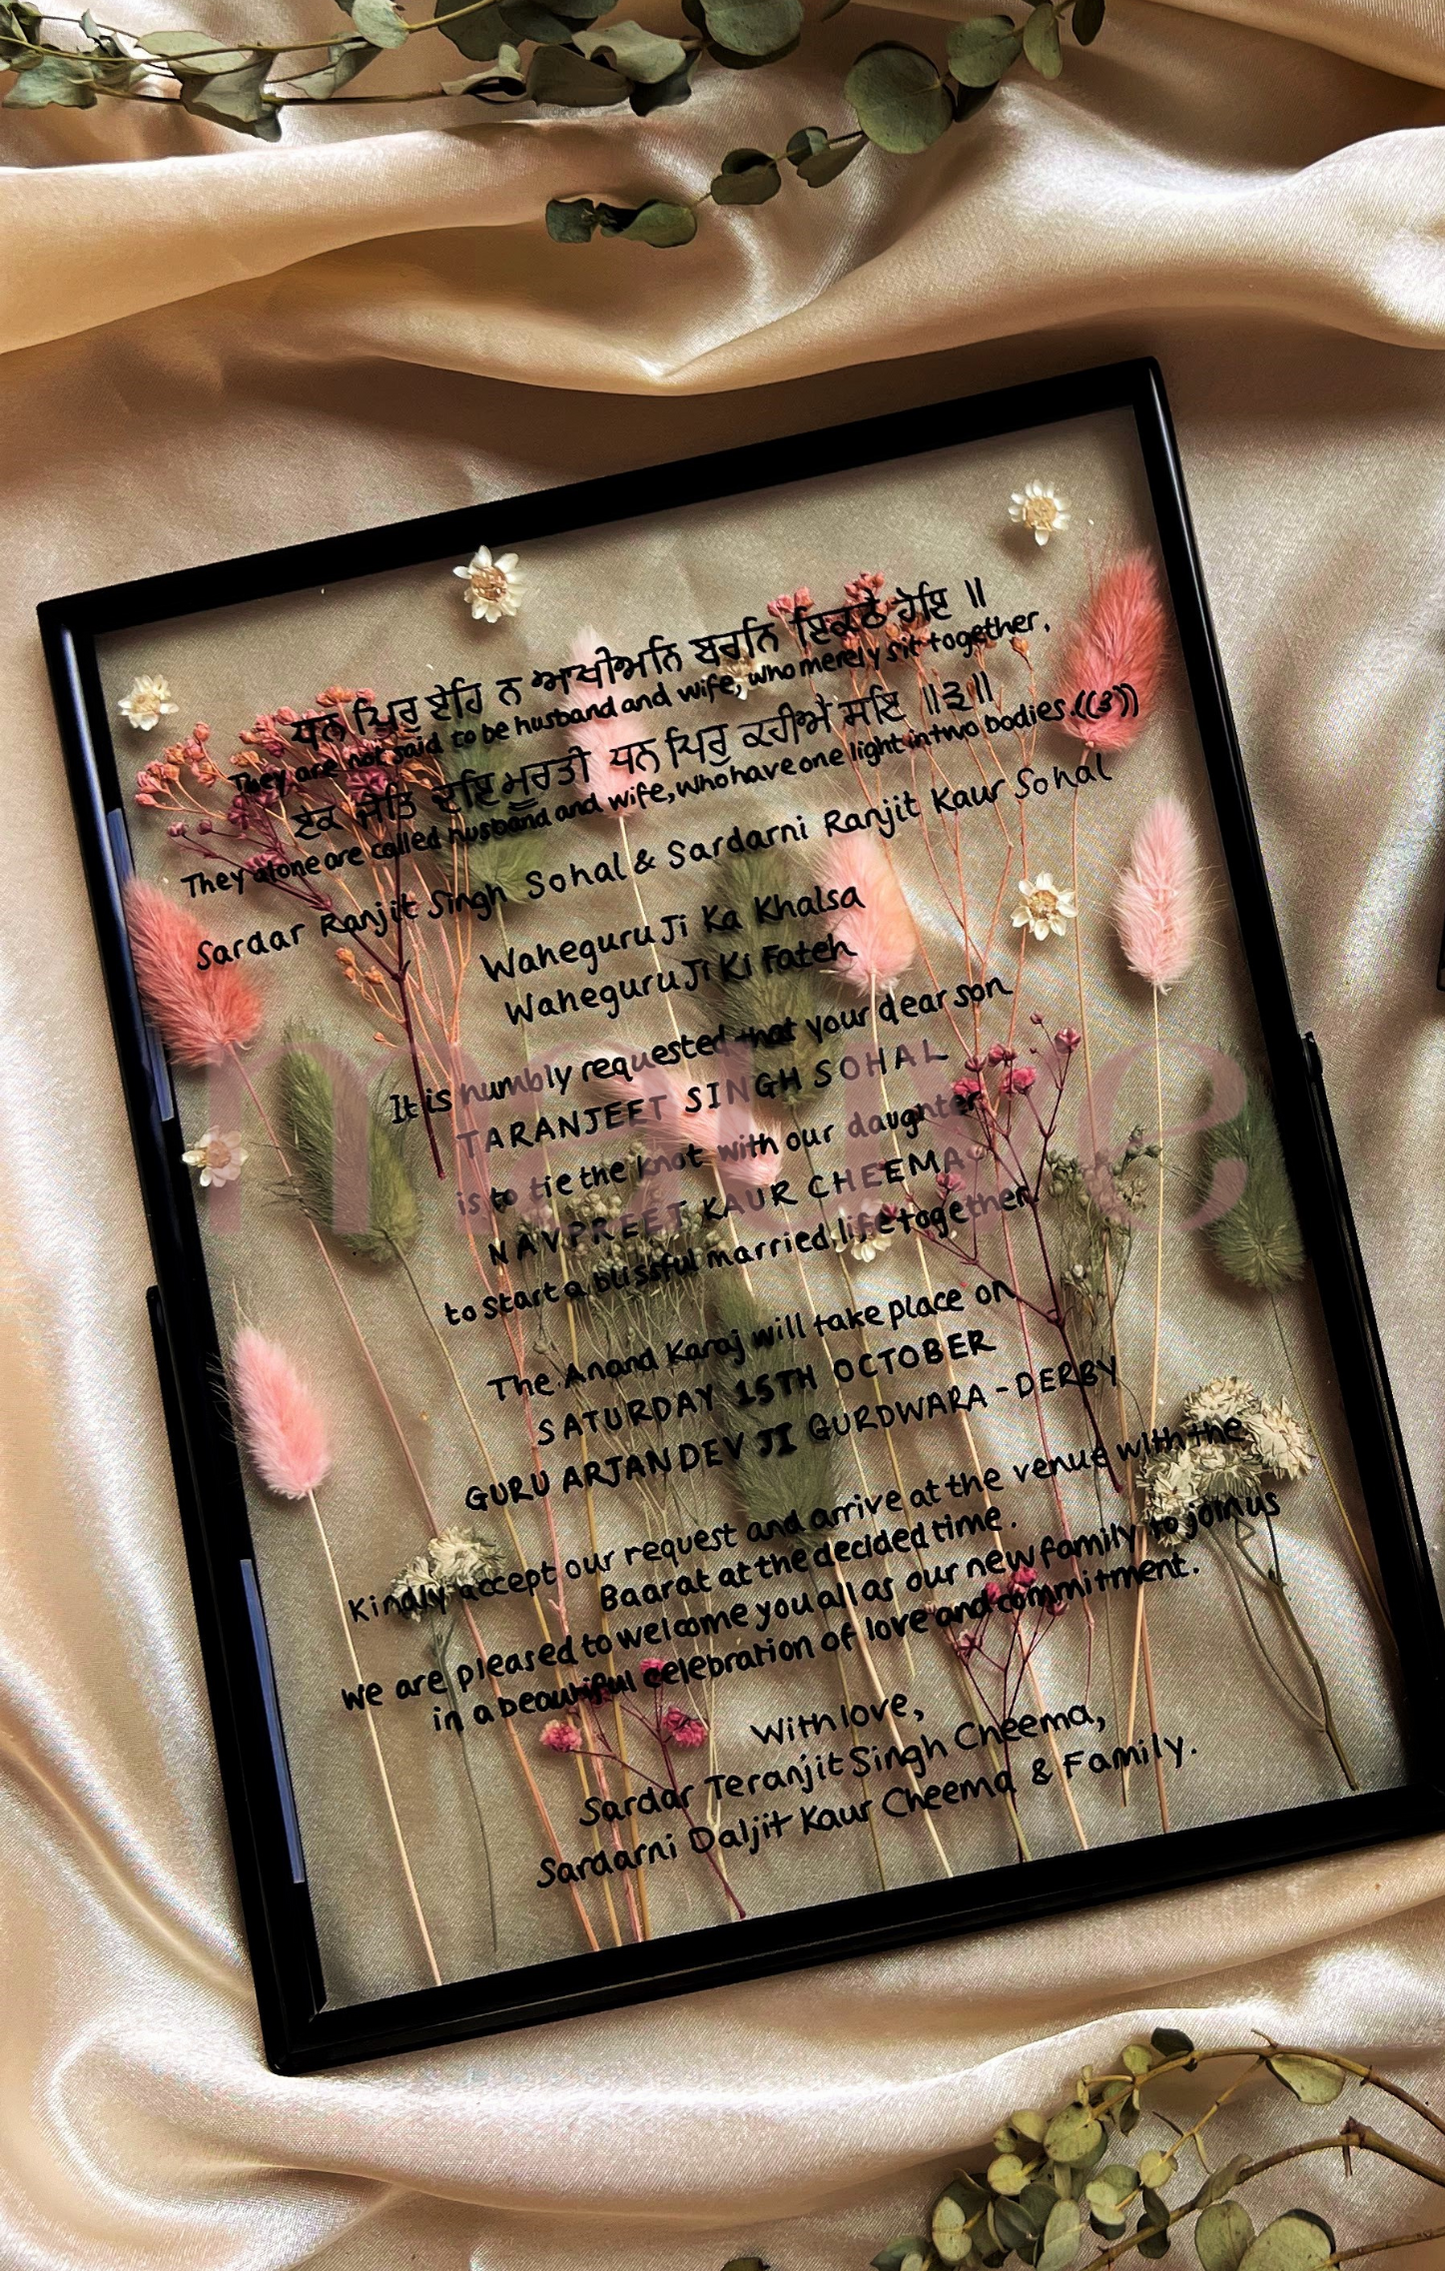 ਧਨ ਪਿਰੁ ਏਹਿ ਨ ਆਖੀਅਨਿ ਬਹਨਿ ਇਕਠੇ ਹੋਇ ॥
They are not said to be husband and wife, who merely sit together.
ਏਕ ਜੋਤਿ ਦੁਇ ਮੂਰਤੀ ਧਨ ਪਿਰੁ ਕਹੀਐ ਸੋਇ ॥੩॥
They alone are called husband and wife, who have one light in two bodies.((3))
Sardar Ranjit Singh Sohal & Sardarni Ranjit Kaur Sohal
Waheguru Ji Ka Khalsa
Waheguru Ji Ki Fateh
It is humbly requested that your dear son
TARANJEET SINGH SOHAL
is to tie the knot with our daughter
NAVPREET KAUR CHEEMA
to start a blissful married life together.
The Anand Karaj will take place on
SATURDAY 15TH OCTOBER
GURU ARJAN DEV JI GURDWARA - DERBY
Kindly accept our request and arrive at the venue with the
Baarat at the decided time.
We are pleased to welcome you all as our new family to join us
in a beautiful celebration of love and commitment.
With love,
Sardar Teranjit Singh Cheema,
Sardarni Daljit Kaur Cheema & Family.